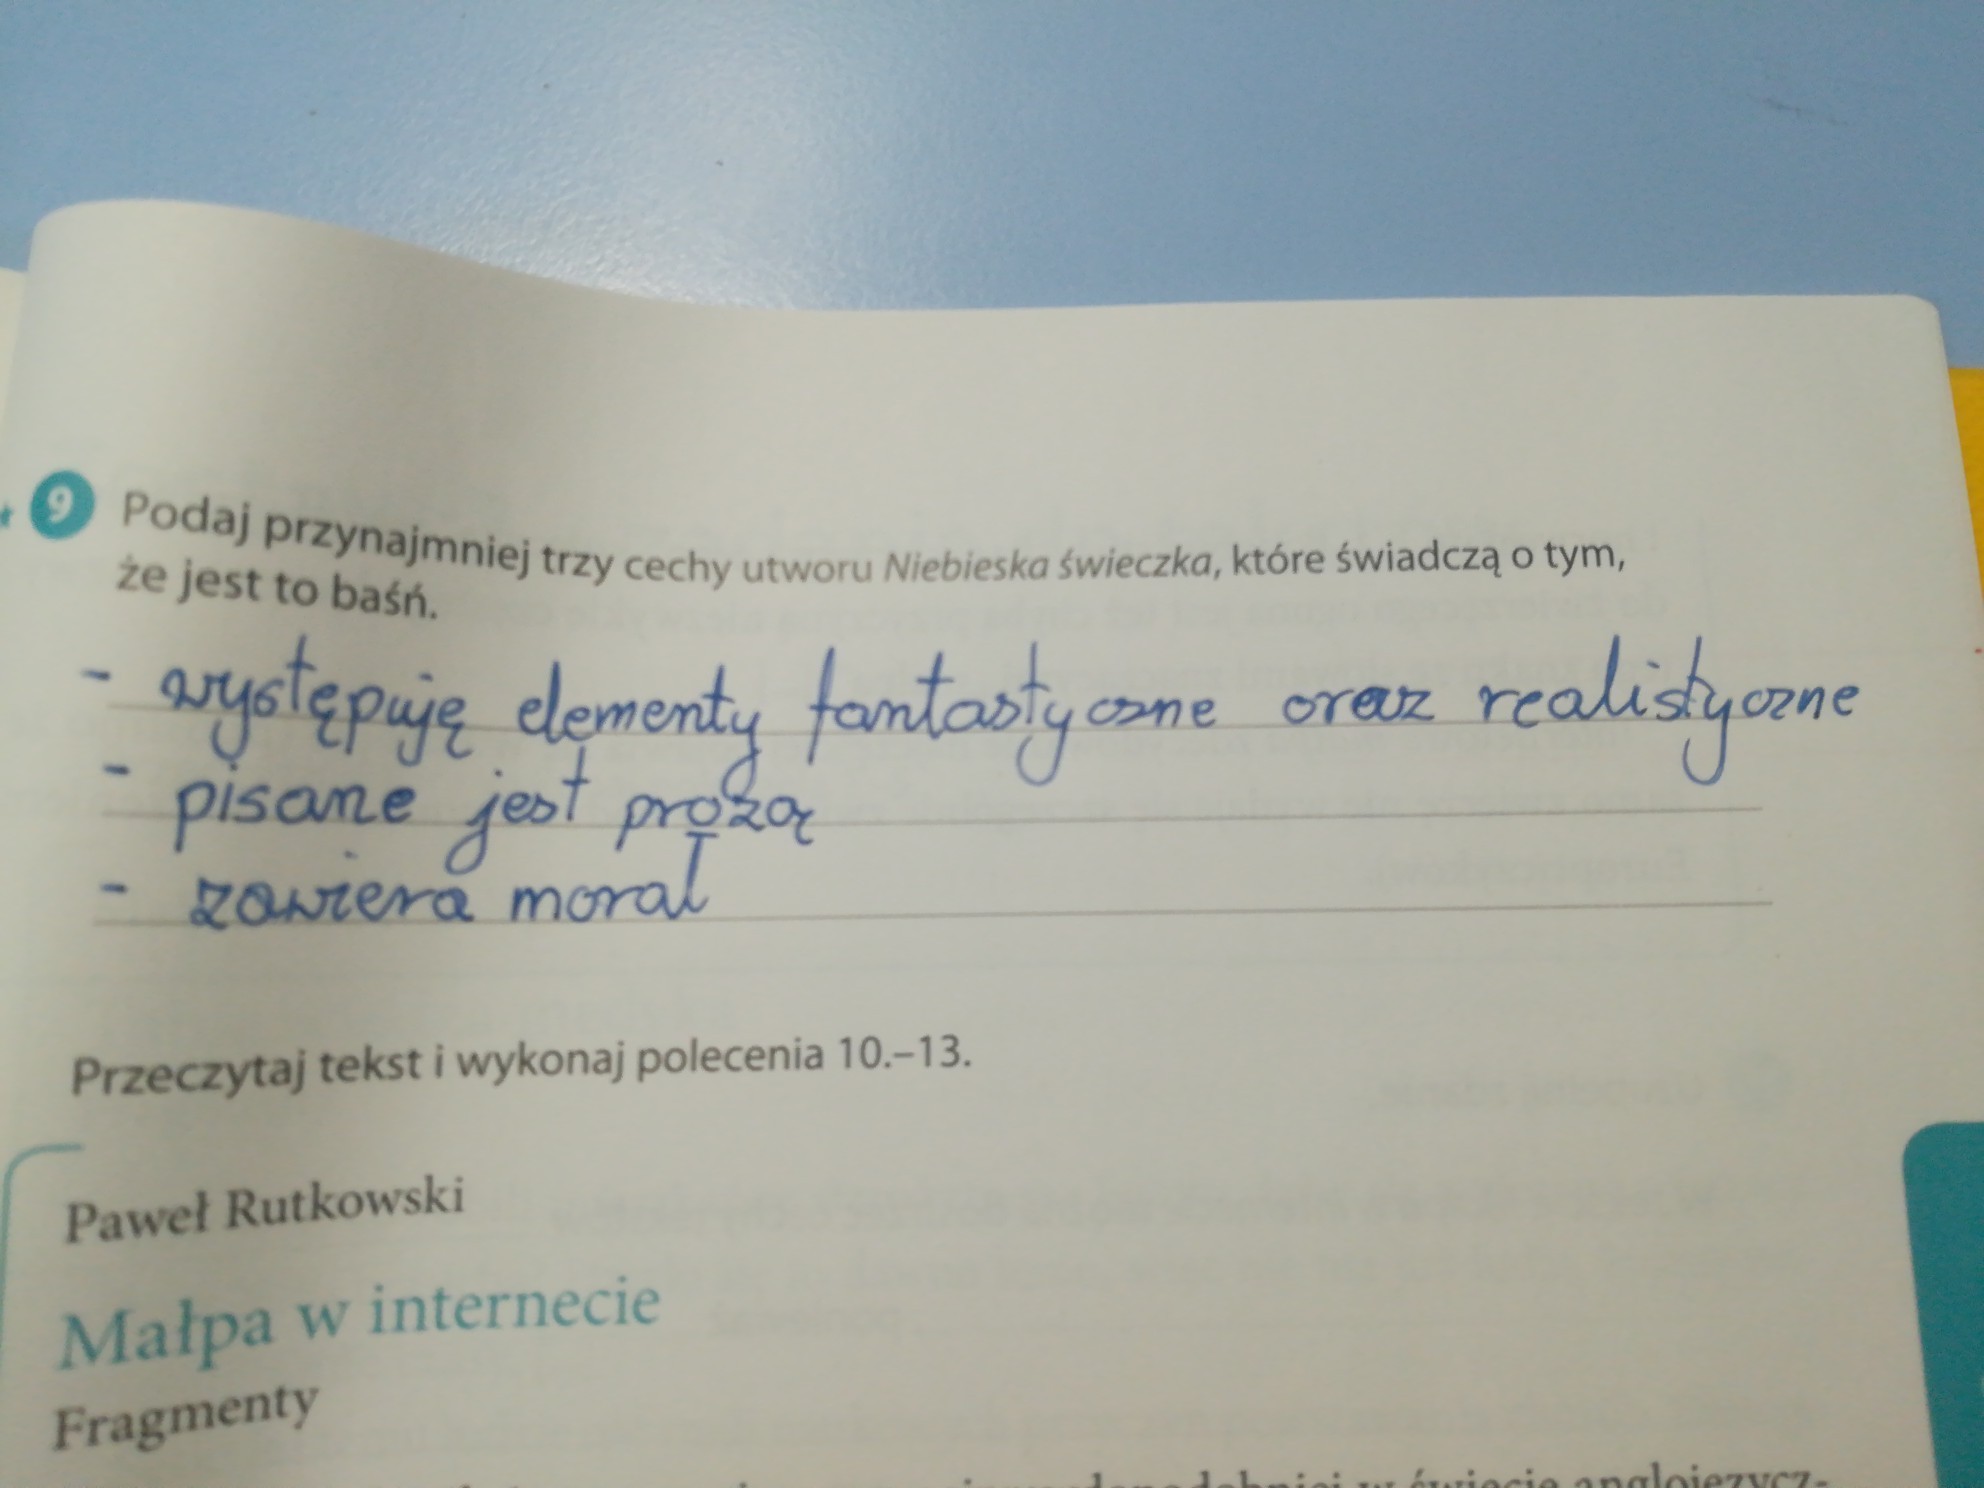 9 Podaj przynajmniej trzy cechy utworu Niebieska świeczka, które świadczą o tym,
że jest to baśń.
- występuję elementy fantastyczne oraz realistyczne
- pisane jest prozą
- zawiera morał
Przeczytaj tekst i wykonaj polecenia 10.–13.
Paweł Rutkowski
Małpa w internecie
Fragmenty
w świecie anglojęzycz-